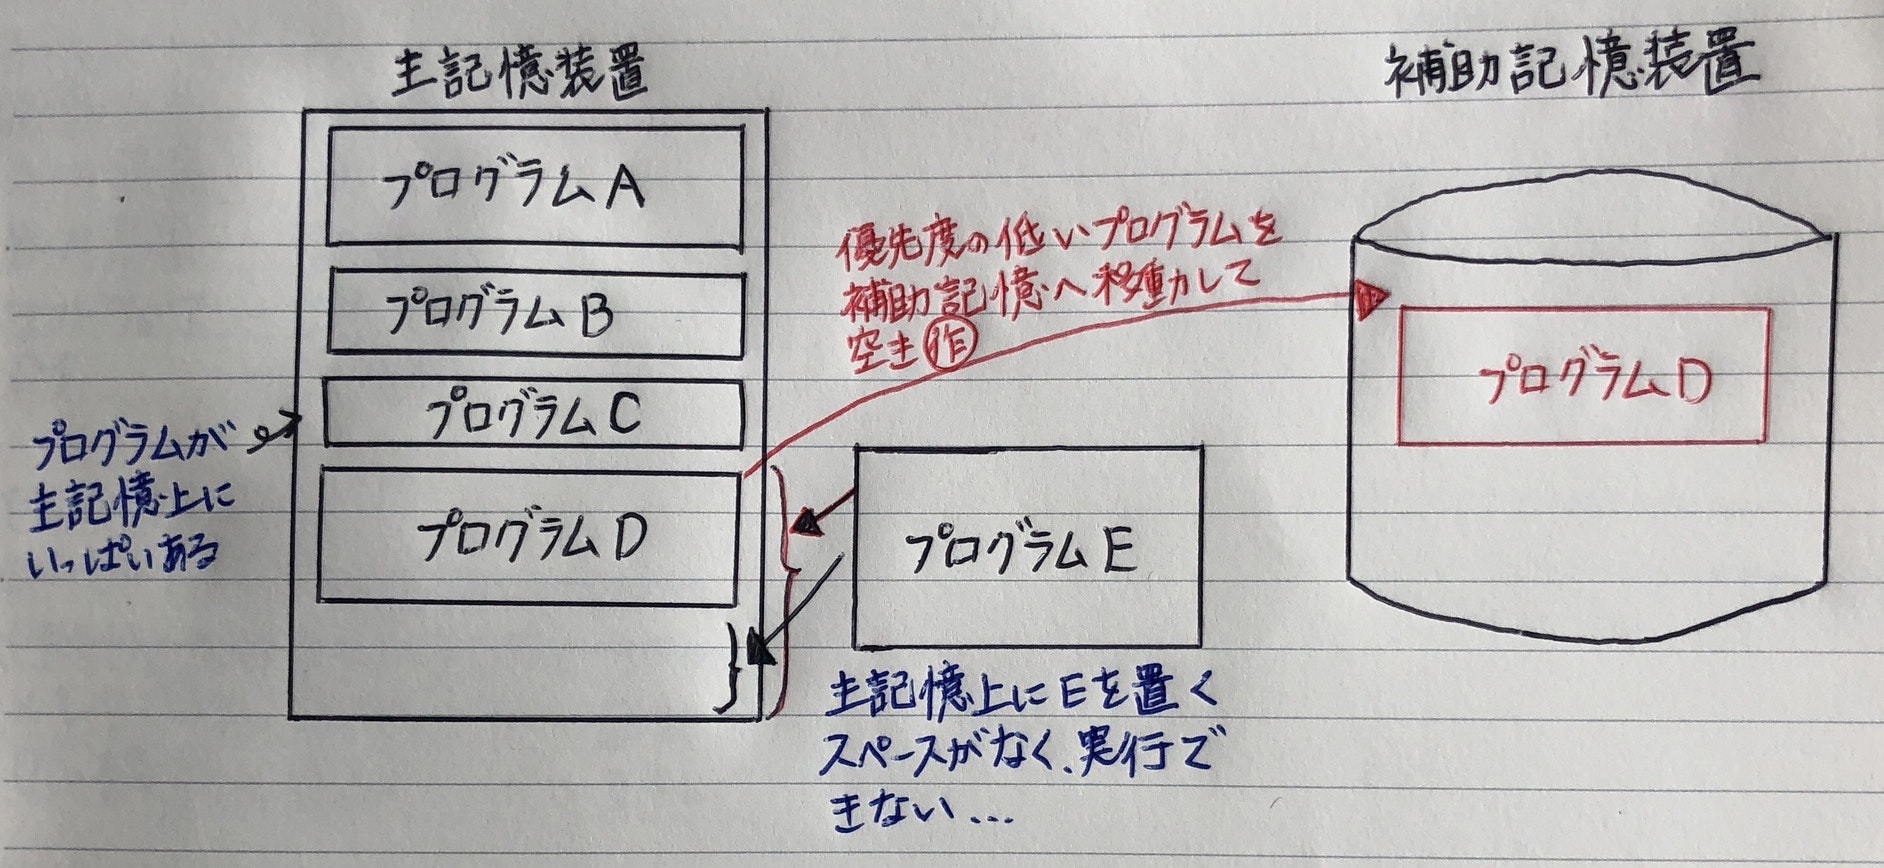 主記憶装置
プログラムA
プログラムB
プログラムC
プログラムD
プログラムが
主記憶上に
いっぱいある
優先度の低いプログラムを
補助記憶へ移動して
空き作
プログラムE
主記憶上にEを置く
スペースがなく、実行で
きない...
補助記憶装置
プログラムD